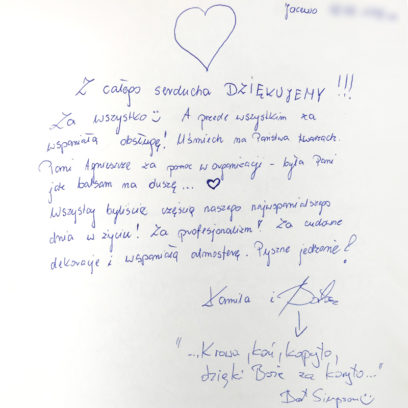 Jacewo
Z całego serducha DZIĘKUJEMY!!!
Za wszystko A przede wszystkim za
wspaniałą obsługę! Uśmiech na Państwa twarzach.
Pani Agnieszce za pomoc w organizacji - była Pani
jak balsam na duszę... ♡
Wszyscy byliście częścią naszego najwspanialszego
dnia w życiu! Za profesjonalizm! Za cudowne
dekoracje i wspaniałą atmosferę. Pyszne jedzonko!
Kamila i
"...Krowa, koń, kopyto,
dzięki Boże za koryto..."
Bart Simpson